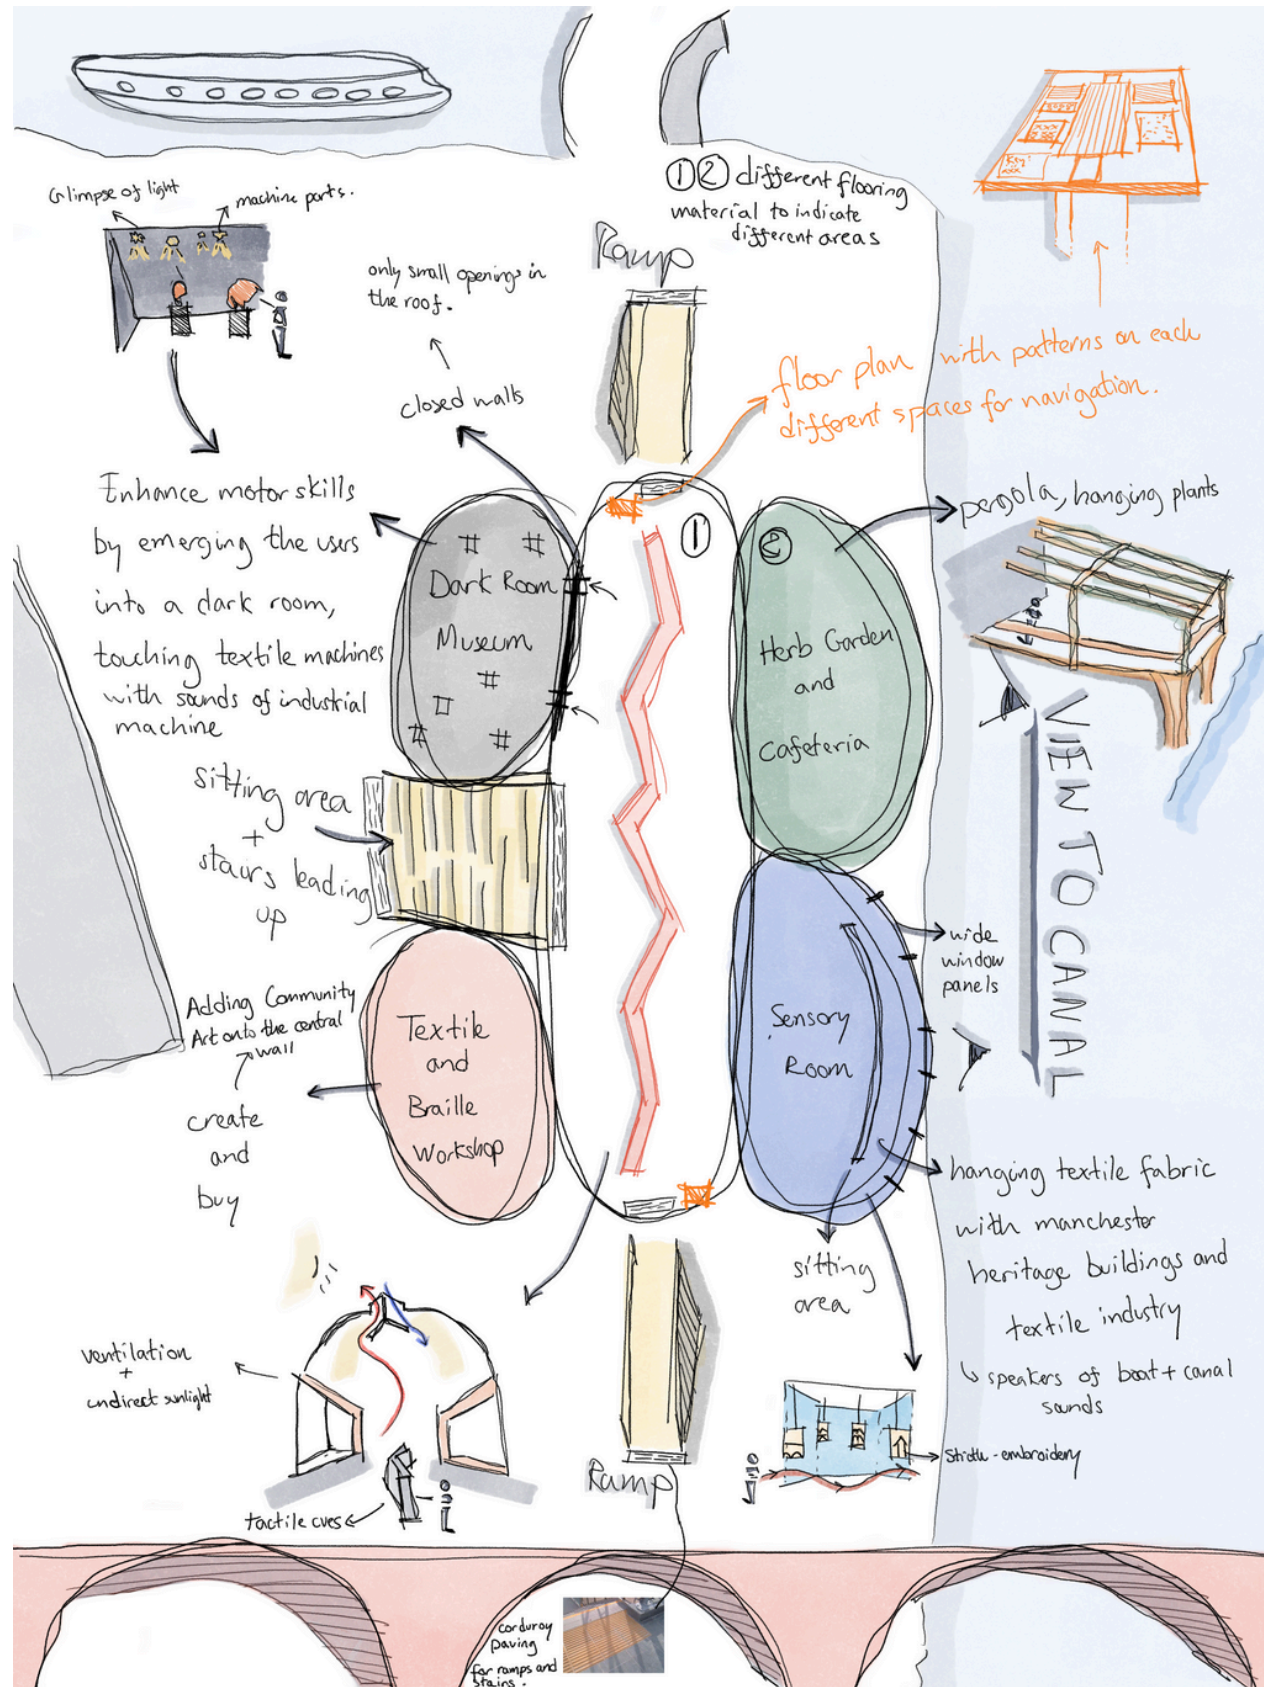 Glimpse of light
machine parts.
only small openings in
the roof.
closed walls
①② different flooring
material to indicate
different areas
Ramp
Key:
xxx
floor plan with patterns on each
different spaces for navigation.
Enhance motor skills
by emerging the users
into a dark room,
touching textile machines
with sounds of industrial
machine
Dark Room
Museum
①
②
Herb Garden
and
Cafeteria
pergola, hanging plants
VIEW TO CANAL
sitting area
+
stairs leading
up
Adding Community
Art onto the central
wall
create
and
buy
Textile
and
Braille
Workshop
Sensory
Room
wide
window
panels
hanging textile fabric
with manchester
heritage buildings and
textile industry
speakers of boat + canal
sounds
sitting
area
ventilation
+
undirect sunlight
tactile cues
Ramp
embroidery
corduroy
paving
for ramps and
stairs.